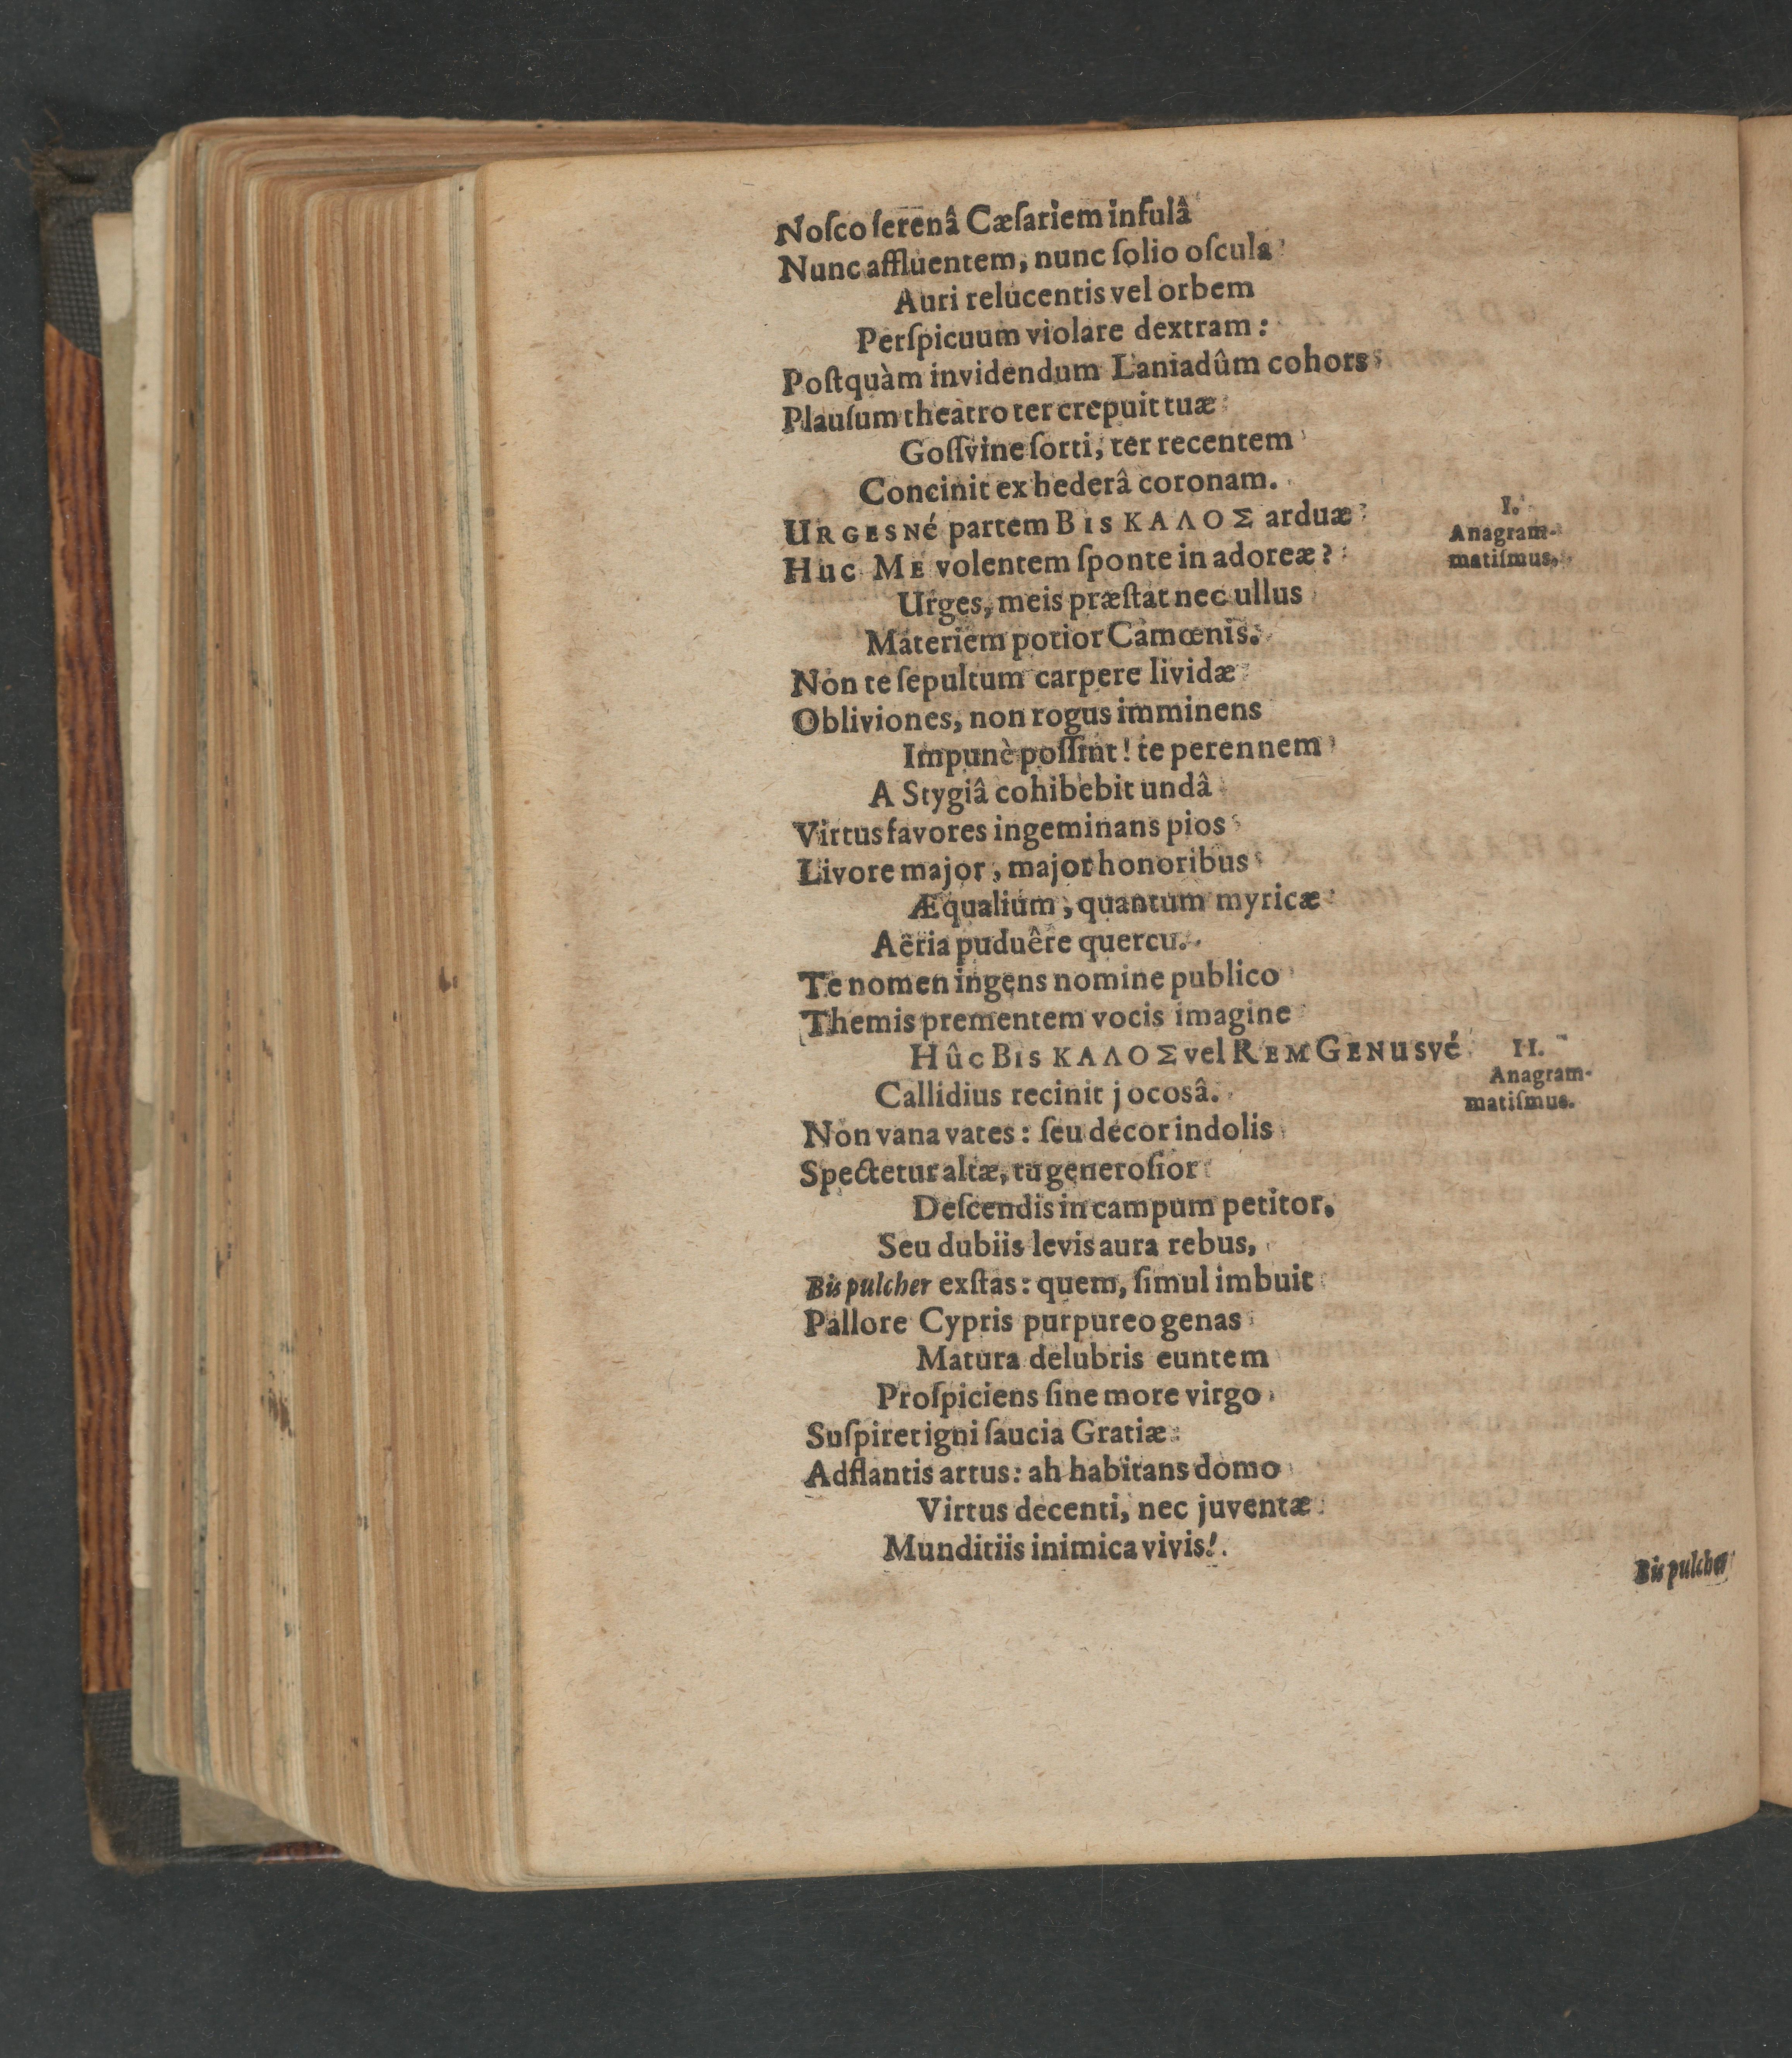 Noſco ſerenâ Cæſariem infulâ
Nunc affluentem, nunc ſolio oſcula
Auri relucentis vel orbem
Perſpicuum violare dextram:
Poſtquàm invidendum Laniadûm cohors
Plauſum theatro ter crepuit tuæ
Goſſvine ſorti, ter recentem
Concinit ex hederâ coronam.
URGESNé partem BIS ΚΑΛΟΣ arduæ
HUC ME volentem ſponte in adoreæ?
I.
Anagram-
matiſmus.
Urges, meis præſtat nec ullus
Materiem potior Camœnis.
Non te ſepultum carpere lividæ
Obliviones, non rogus imminens
Impunè poſſint! te perennem
A Stygiâ cohibebit undâ
Virtus favores ingeminans pios
Livore major, major honoribus
Æqualium, quantum myricæ
Aëria puduêre quercu.
Te nomen ingens nomine publico
Themis prementem vocis imagine
HûC BIS ΚΑΛΟΣ vel REM GENUSvé
II.
Anagram-
matiſmus.
Callidius recinit jocosâ.
Non vana vates: ſeu decor indolis
Spectetur altæ, tu generoſior
Deſcendis in campum petitor,
Seu dubiis levis aura rebus,
Bis pulcher exſtas: quem, ſimul imbuit
Pallore Cypris purpureo genas
Matura delubris euntem
Proſpiciens ſine more virgo
Suſpiret igni ſaucia Gratiæ
Adflantis artus: ah habitans domo
Virtus decenti, nec juventæ
Munditiis inimica vivis!
Bis pulcher